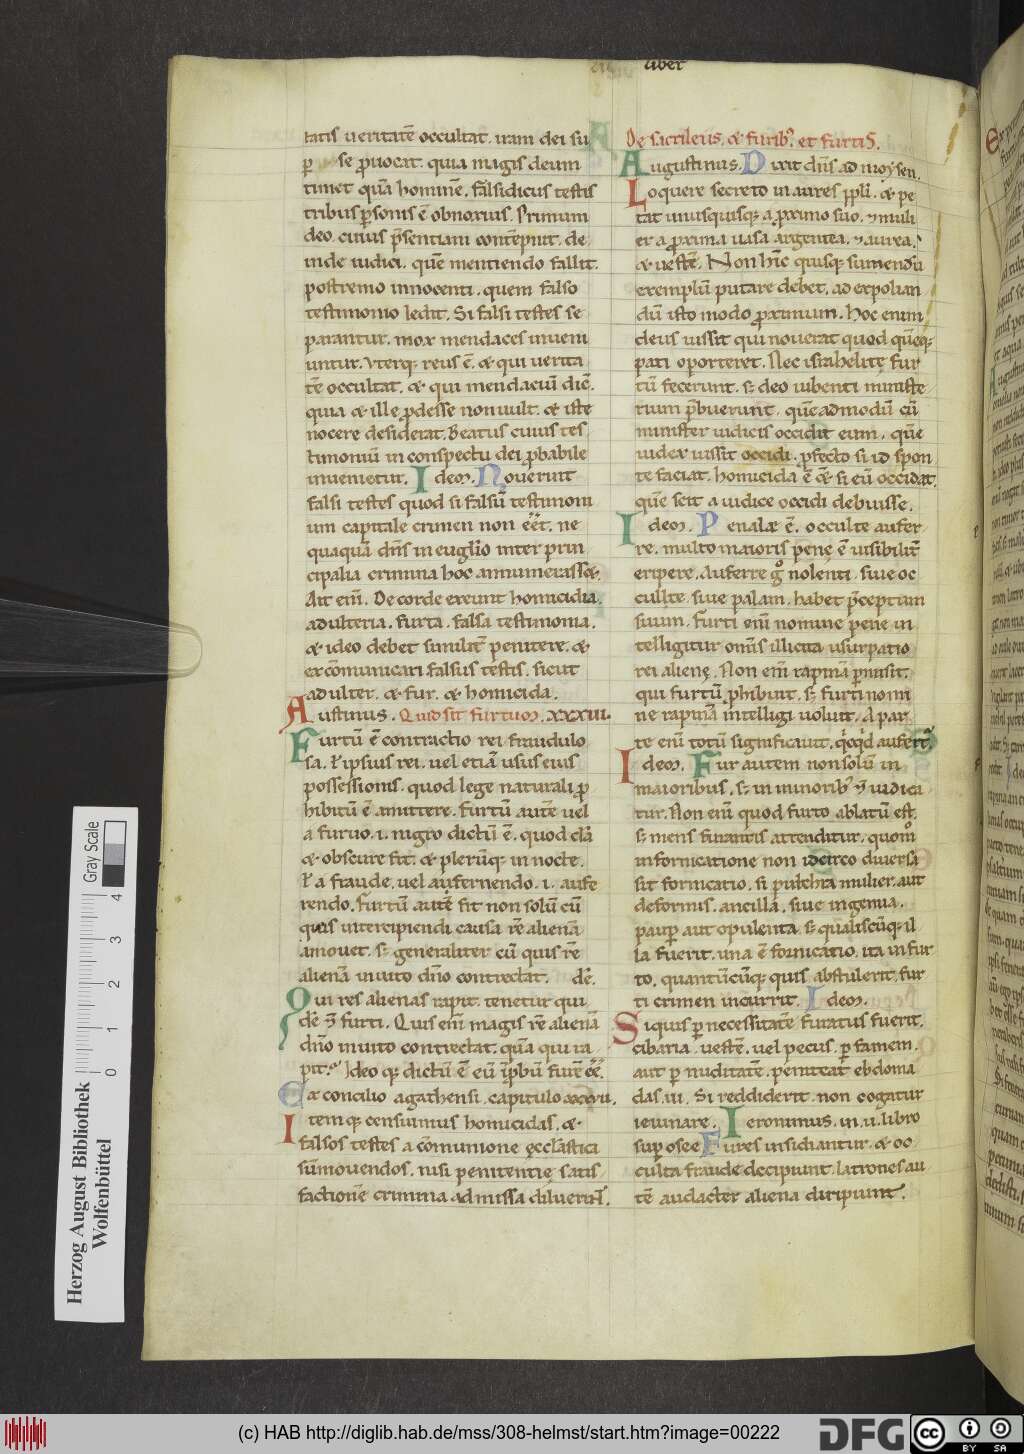 liber
tatis ueritatē occultat. iram dei su
ꝑ se ꝓuocat. quia magis deum
timet quā hominē. Falsidicus testis
tribus ꝑsonis ē obnoxius. Primum
deo. cuius p̄sentiam contēpnit. de
inde iudici. quē mentiendo fallit.
postremo innocenti. quem falso
testimonio ledit. Si falsi testes se
parantur. mox mendaces inueni
untur. Vterq; reus ē. & qui uerita
tē occultat. & qui mendaciū dic̄.
quia & ille ꝓdesse non uult. & iste
nocere desiderat. Beatus cuius tes
timoniū in conspectu dei ꝓbabile
inuenietur. Idem. Nouerint
falsi testes quod si falsū testimoni
um capitale crimen non eēt. ne
quaquā dn̄s in euglio inter prin
cipalia crimina hoc annumerass&.
Ait eni̅. De corde exeunt homicidia.
adulteria. furta. falsa testimonia.
& ideo debet similit̄ penitere. &
excōmunicari falsus testis. sicut
adulter. & fur. & homicida.
Austinus. Quid sit furtum. XXXIII.
Furtū ē contractio rei fraudulo
sa. ł ipsius rei. uel etiā usus eius
possessionis. quod lege naturali ꝓ
hibitū ē amittere. Furtū autē uel
a furuo .i. nigro dictū ē. quod clā
& obscure fit. & plerūq; in nocte.
ł a fraude. uel auferendo .i. aufe
rendo. Furtū autē fit non solū cū
quis intercipiendi causa rē alienā
amouet. s; generaliter cū quis rē
alienā inuito dn̄o contrectat. dē.
Qui res alienas rapit. tenetur qui
dē & furti. Quis eni̅ magis rē alienā
dn̄o inuito contrectat. quā qui ra
pit. Ideoq; dictū ē eū īprobū furē eē.
Ex concilio agathensi. capitulo XXXVII.
Itemq; censuimus homicidas. &
falsos testes a cōmunione ęcclesiastica
sūmouendos. nisi penitentię satis
factionē crimina admissa diluerint.
De sacrileus. & furib;. et furtis.
Augustinus. Dixit dn̄s ad moysen.
Loquere secreto in aures ppłi. & pe
tat unusquisq; a ꝓximo suo. & muli
er a ꝓxima uasa argentea. & aurea.
& uestē. Non hīc quisq; sumendū
exemplū putare debet. ad expolian
dū isto modo ꝓximum. Hoc enim
deus iussit qui nouerat quod quēq;
pati oporteret. Nec israhelitę fur
tū fecerunt. s; deo iubenti ministe
rium p̄buerunt. quēadmodū cū
minister iudicis occidit eum. quē
iudex iussit occidi. ꝓfecto si id spon
te faciat. homicida ē & si eū occidat.
quē scit a iudice occidi debuisse.
Idem. Penalæ ē. occulte aufer
re. multo maioris penę ē uisibilit̄
eripere. Auferre g̊ nolenti. siue oc
culte. siue palam. habet p̄ceptum
suum. Furti eni̅ nomine bene in
telligitur omīs illicita usurpatio
rei alienę. Non eni̅ rapinā ꝑmisit.
qui furtū ꝓhibuit. s; furti nomi
ne rapinā intelligi uoluit. A par
te eni̅ totū significauit. qicqd aufert̄.
Idem. Fur autem non solū in
maioribus. s; in minorib; & iudica
tur. Non eni̅ quod furto ablatū est.
s; mens furantis attenditur. quom̊
in fornicatione non idcirco diuersa
sit fornicatio. si pulchra mulier. aut
deformis. ancilla. siue ingenua.
pauꝑ aut opulenta. s; qualiscūq; il
la fuerit. una ē fornicatio. ita in fur
to. quantūcūq; quis abstulerit. fur
ti crimen incurrit. Idem.
Si quis ꝑ necessitatē furatus fuerit.
cibaria. uestē. uel pecus. ꝑ famem.
aut ꝑ nuditatē. peniteat ebdoma
das .iii. Si reddiderit. non cogatur
ieiunare. Ieronimus. in .ii. libro
suꝑ osee. Fures insidiantur. & oc
culta fraude decipiunt. latrones au
tē audacter aliena diripiunt.
Gray Scale
0 1 2 3 4
Herzog August Bibliothek
Wolfenbüttel
(c) HAB http://diglib.hab.de/mss/308-helmst/start.htm?image=00222
DFG
cc
BY SA